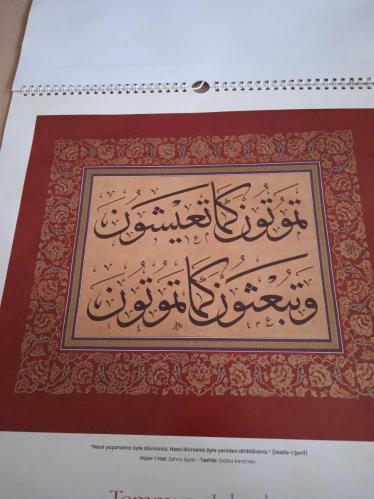 تموتون كما تعيشون
وتبعثون كما تموتون
"Nasıl yaşarsanız öyle ölürsünüz. Nasıl ölürseniz öyle yeniden diriltilirsiniz." (Hadis-i Şerif)
Hüsn-i Hat: Zehra Apalı • Tezhib: Sıdıka Kerimen